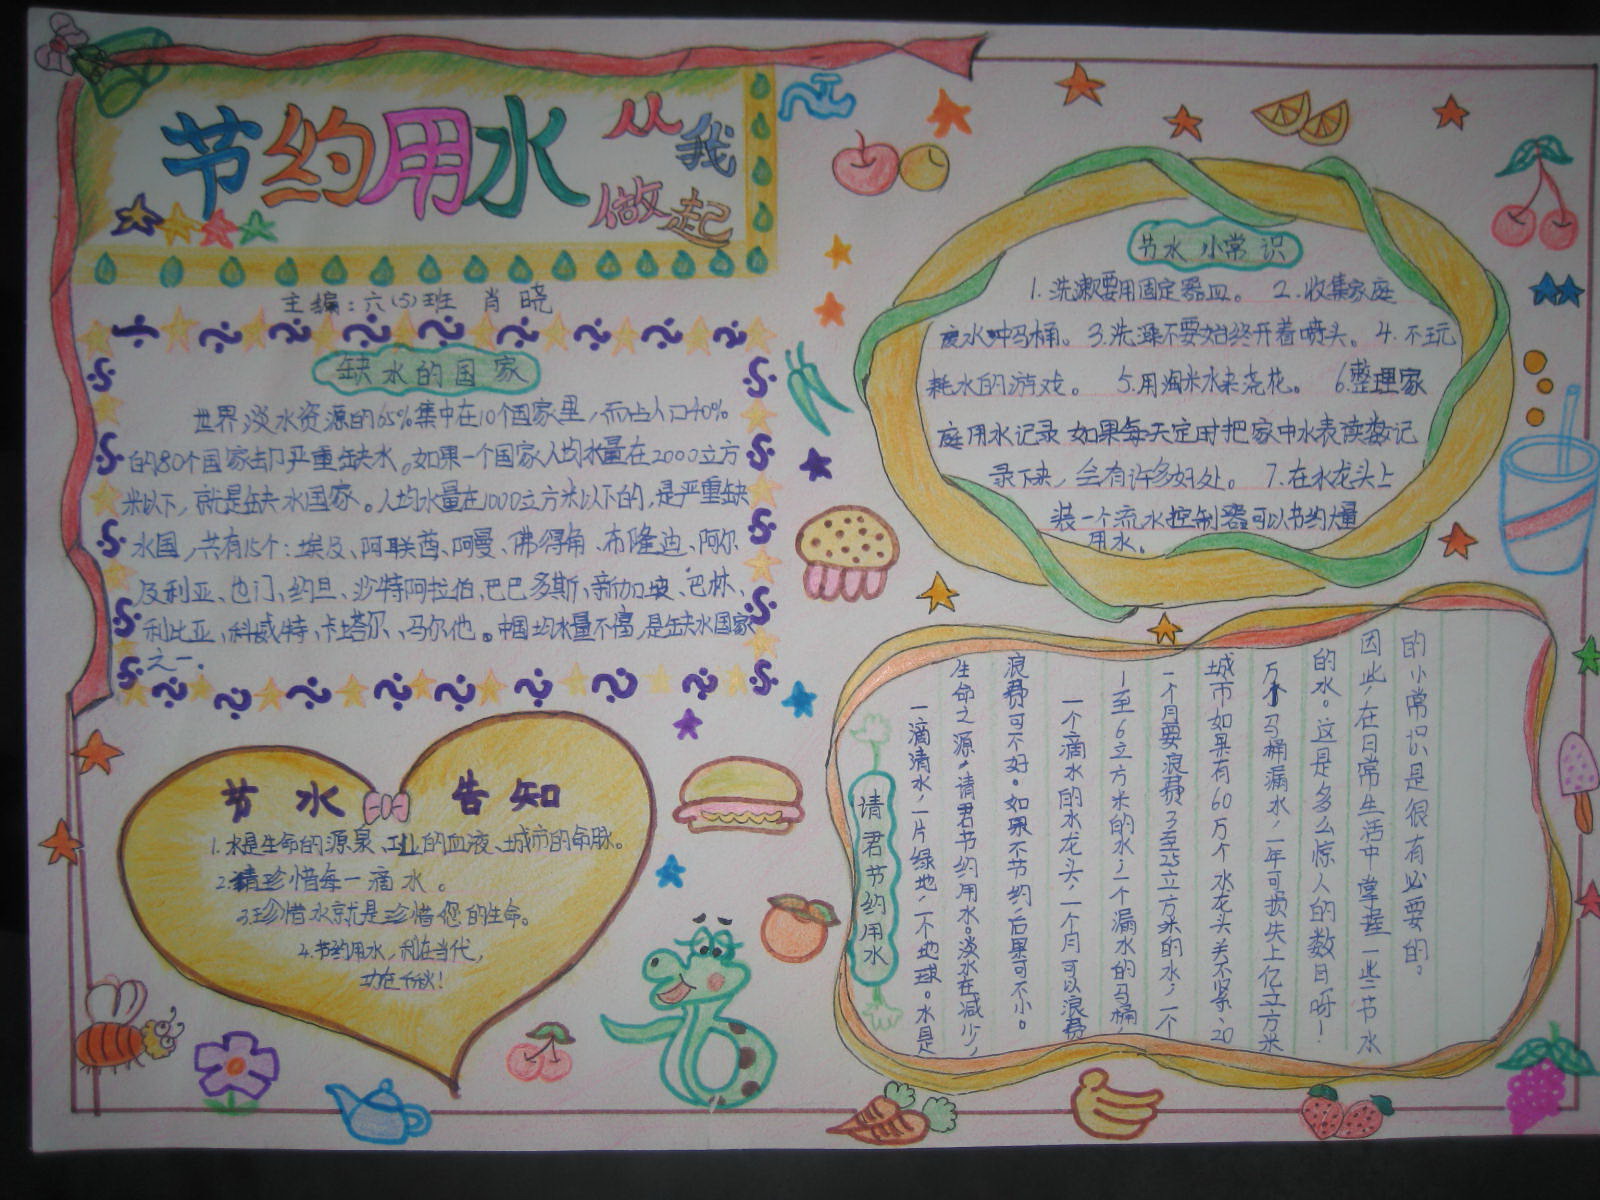 节约用水
从我
做起
主编:六(5)班 肖晓
缺水的国家
世界淡水资源的65%集中在10个国家里,而占人口40%
的80个国家却严重缺水。如果一个国家人均水量在2000立方
米以下,就是缺水国家。人均水量在1000立方米以下的,是严重缺
水国,共有15个:埃及、阿联酋、阿曼、佛得角、布隆迪、阿尔
及利亚、也门、约旦、沙特阿拉伯、巴巴多斯、新加坡、巴林、
利比亚、科威特、卡塔尔、马尔他。中国均水量不富,是缺水国家
之一.
节水 告知
1.水是生命的源泉、工业的血液、城市的命脉。
2.请珍惜每一滴水。
3.珍惜水就是珍惜您的生命。
4.节约用水,利在当代,
功在千秋!
节水 小常识
1.洗漱要用固定器皿。 2.收集家庭
废水冲马桶。3.洗澡不要始终开着喷头。4.不玩
耗水的游戏。 5.用淘米水来浇花。 6.整理家
庭用水记录 如果每天定时把家中水表读数记
录下来,会有许多好处。 7.在水龙头上
装一个流水控制器可以节约大量
用水。
请君节约用水
一滴清水,一片绿地,一个地球。水是
生命之源,请君节约用水。淡水在减少,
浪费可不好。如果不节约,后果可不小。
一个滴水的水龙头,一个月可以浪费
1至6立方米的水,一个漏水的马桶,
一个月要浪费3至25立方米的水,一个
城市如果有60万个水龙头关不紧、20
万个马桶漏水,一年可损失上亿立方米
的水。这是多么惊人的数目呀!
因此,在日常生活中掌握一些节水
的小常识是很有必要的。